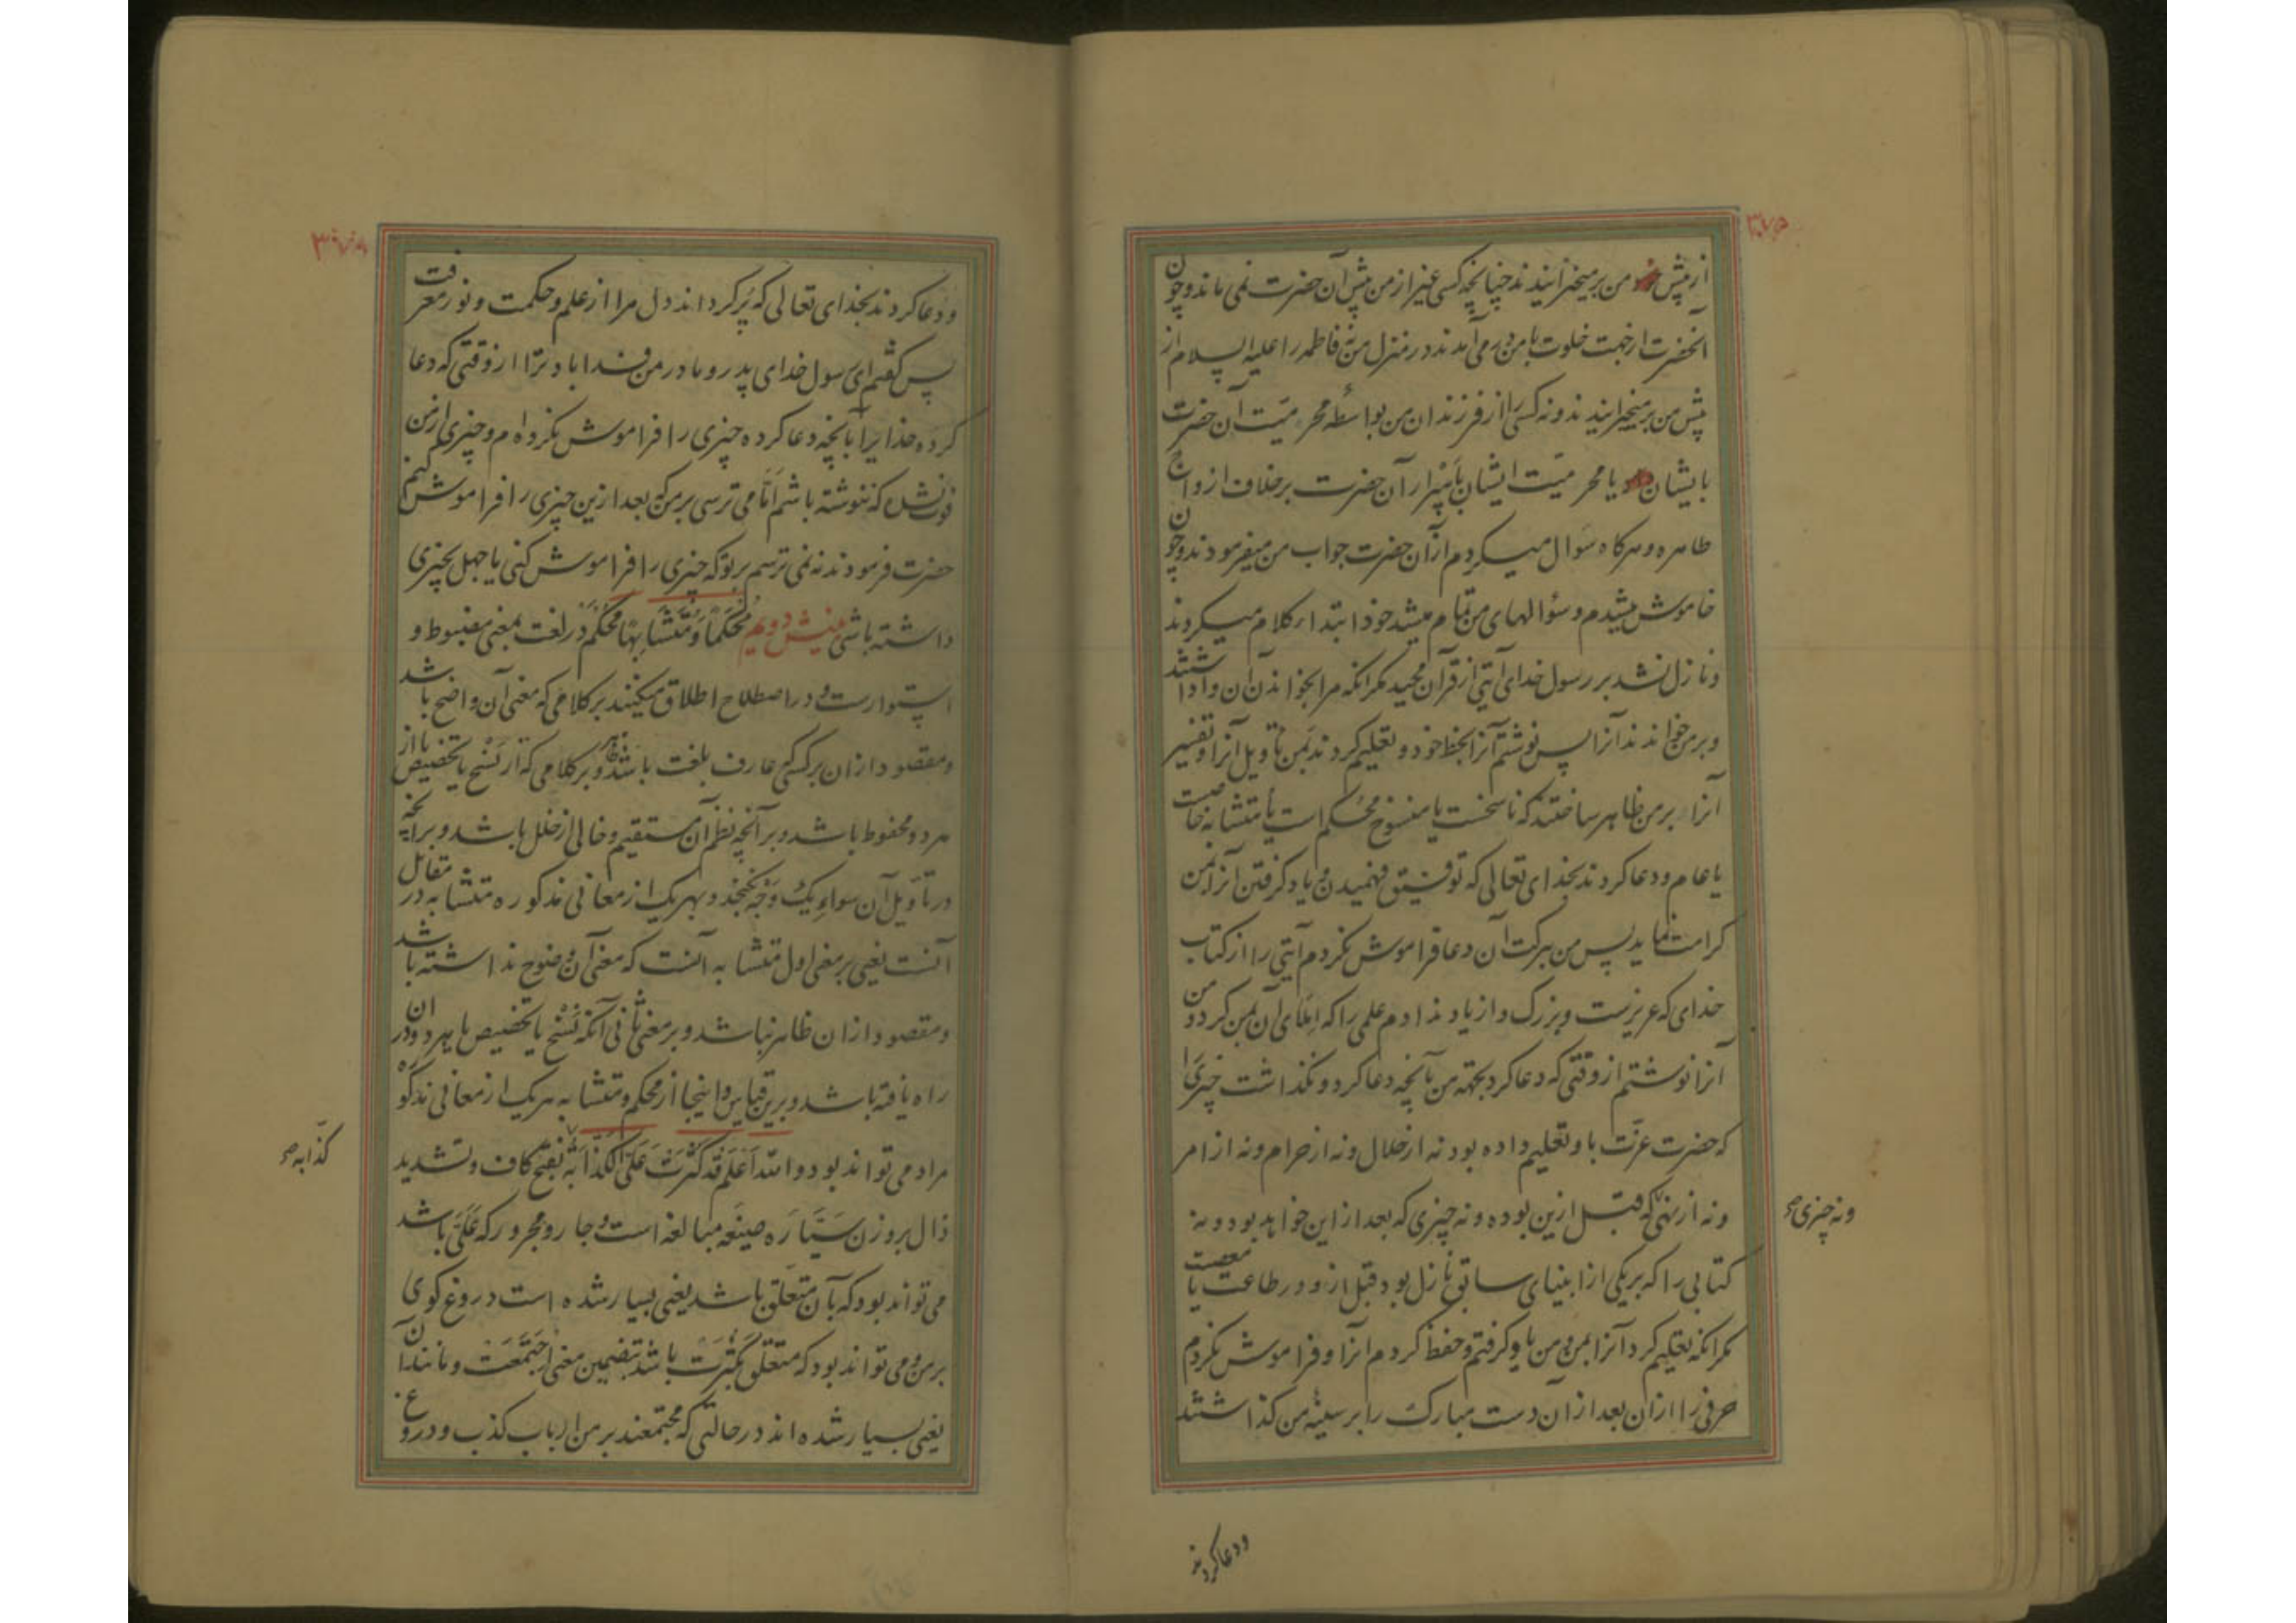 از پیش من برمیخیزانیدند چنانچه کسی غیر از من پیش آن حضرت نمی ماند و چون
آنحضرت از جهت خلوت با من در می آمدند در منزل من نه فاطمه را علیه السلام از
پیش من برمیخیزانیدند و نه کسی را از فرزندان من بواسطه محرمیت آن حضرت
بایشان یا محرمیت ایشان باسرار آن حضرت برخلاف ازواج
طاهره و هرگاه سوال میکردم از آن حضرت جواب من میفرمودند و چون
خاموش میشدم و سؤالهای من تمام میشد خود ابتدا بکلام میکردند
و نازل نشد بر رسول خدای آیتی از قرآن مجید مگر آنکه مرا بخواندن آن وا داشتند
و بر من خواندند آنرا پس نوشتم آنرا بخط خود و تعلیم کردند بمن تأویل آنرا و تفسیر
آنرا بر من ظاهر ساختند که ناسخست یا منسوخ محکم است یا متشابه خاصست
یا عام و دعا کردند بخدای تعالی که توفیق فهمیدن و یاد گرفتن آنرا بمن
کرامت نماید پس من ببرکت آن دعا فراموش نکردم آیتی را از کتاب
خدای که عزیزست و بزرگ و از یاد ندادم علمی را که املای آن بمن کرد و من
آنرا نوشتم از وقتی که دعا کرد بجهته من بآنچه دعا کرد و نگذاشت چیزی را
که حضرت عزت باو تعلیم داده بود نه از حلال و نه از حرام و نه از امر
و نه از نهی که قبل ازین بوده و نه چیزی که بعد از این خواهد بود و نه
و نه چیزی صح
کتابی را که بر یکی از انبیای سابق نازل بود قبل ازو در طاعت یا معصیت
مگر آنکه تعلیم کرد آنرا بمن و من یاد گرفتم و حفظ کردم آنرا و فراموش نکردم
حرفی را از آن بعد از آن دست مبارک را بر سینه من گذاشتند
و دعا کردند
و دعا کردند بخدای تعالی که پر کرداند دل مرا از علم و حکمت و نور معرفت
پس گفتم ای رسول خدای پدر و مادر من فدا باد ترا از وقتی که دعا
کرده خدا یرا بآنچه دعا کرده چیزی را فراموش نکرده ام و چیزی از من
فوت نشده که ننوشته باشم آیا می ترسی بر من که بعد ازین چیزی را فراموش کنم
حضرت فرمودند نه نمی ترسم بر تو که چیزی را فراموش کنی یا جهل بچیزی
داشته باشی مُحْکَماً وَ مُتَشابِهاً محکم در لغت بمعنی مضبوط و
استوارست و در اصطلاح اطلاق میکنند بر کلامی که معنی آن واضح باشد
و مقصود از آن بر کسی که عارف بلغت باشد ظاهر و بر کلامی که از نسخ یا تخصیص یا از
هر دو محفوظ باشد و بر آنچه نظم آن مستقیم و خالی از خلل باشد و بر آنچه
در تأویل آن سوای یک وجه نگنجد و بهر یک از معانی مذکوره متشابه در مقابل
آنست یعنی بر معنی اول متشابه آنست که معنی آن وضوح نداشته باشد
و مقصود از آن ظاهر نباشد و بر معنی ثانی آنکه نسخ یا تخصیص یا هر دو در آن
راه یافته باشد و برین قیاس و اینجا از محکم و متشابه هر یک از معانی مذکوره
مراد می تواند بود و الله اعلم قَدْ کَثُرَتْ عَلَیَّ الْکَذّابَةُ بفتح کاف و تشدید
کذّابه صح
ذال بر وزن سَیّارَه صیغه مبالغه است و جار و مجرور که عَلَیَّ باشد
می تواند بود که بآن متعلق باشد یعنی بسیار شده است دروغ کوی
بر من و می تواند بود که متعلق بکثرت باشد بتضمین معنی اجتمعت و مانند آن
یعنی بسیار شده اند در حالتی که مجتمعند بر من ارباب کذب و دروغ